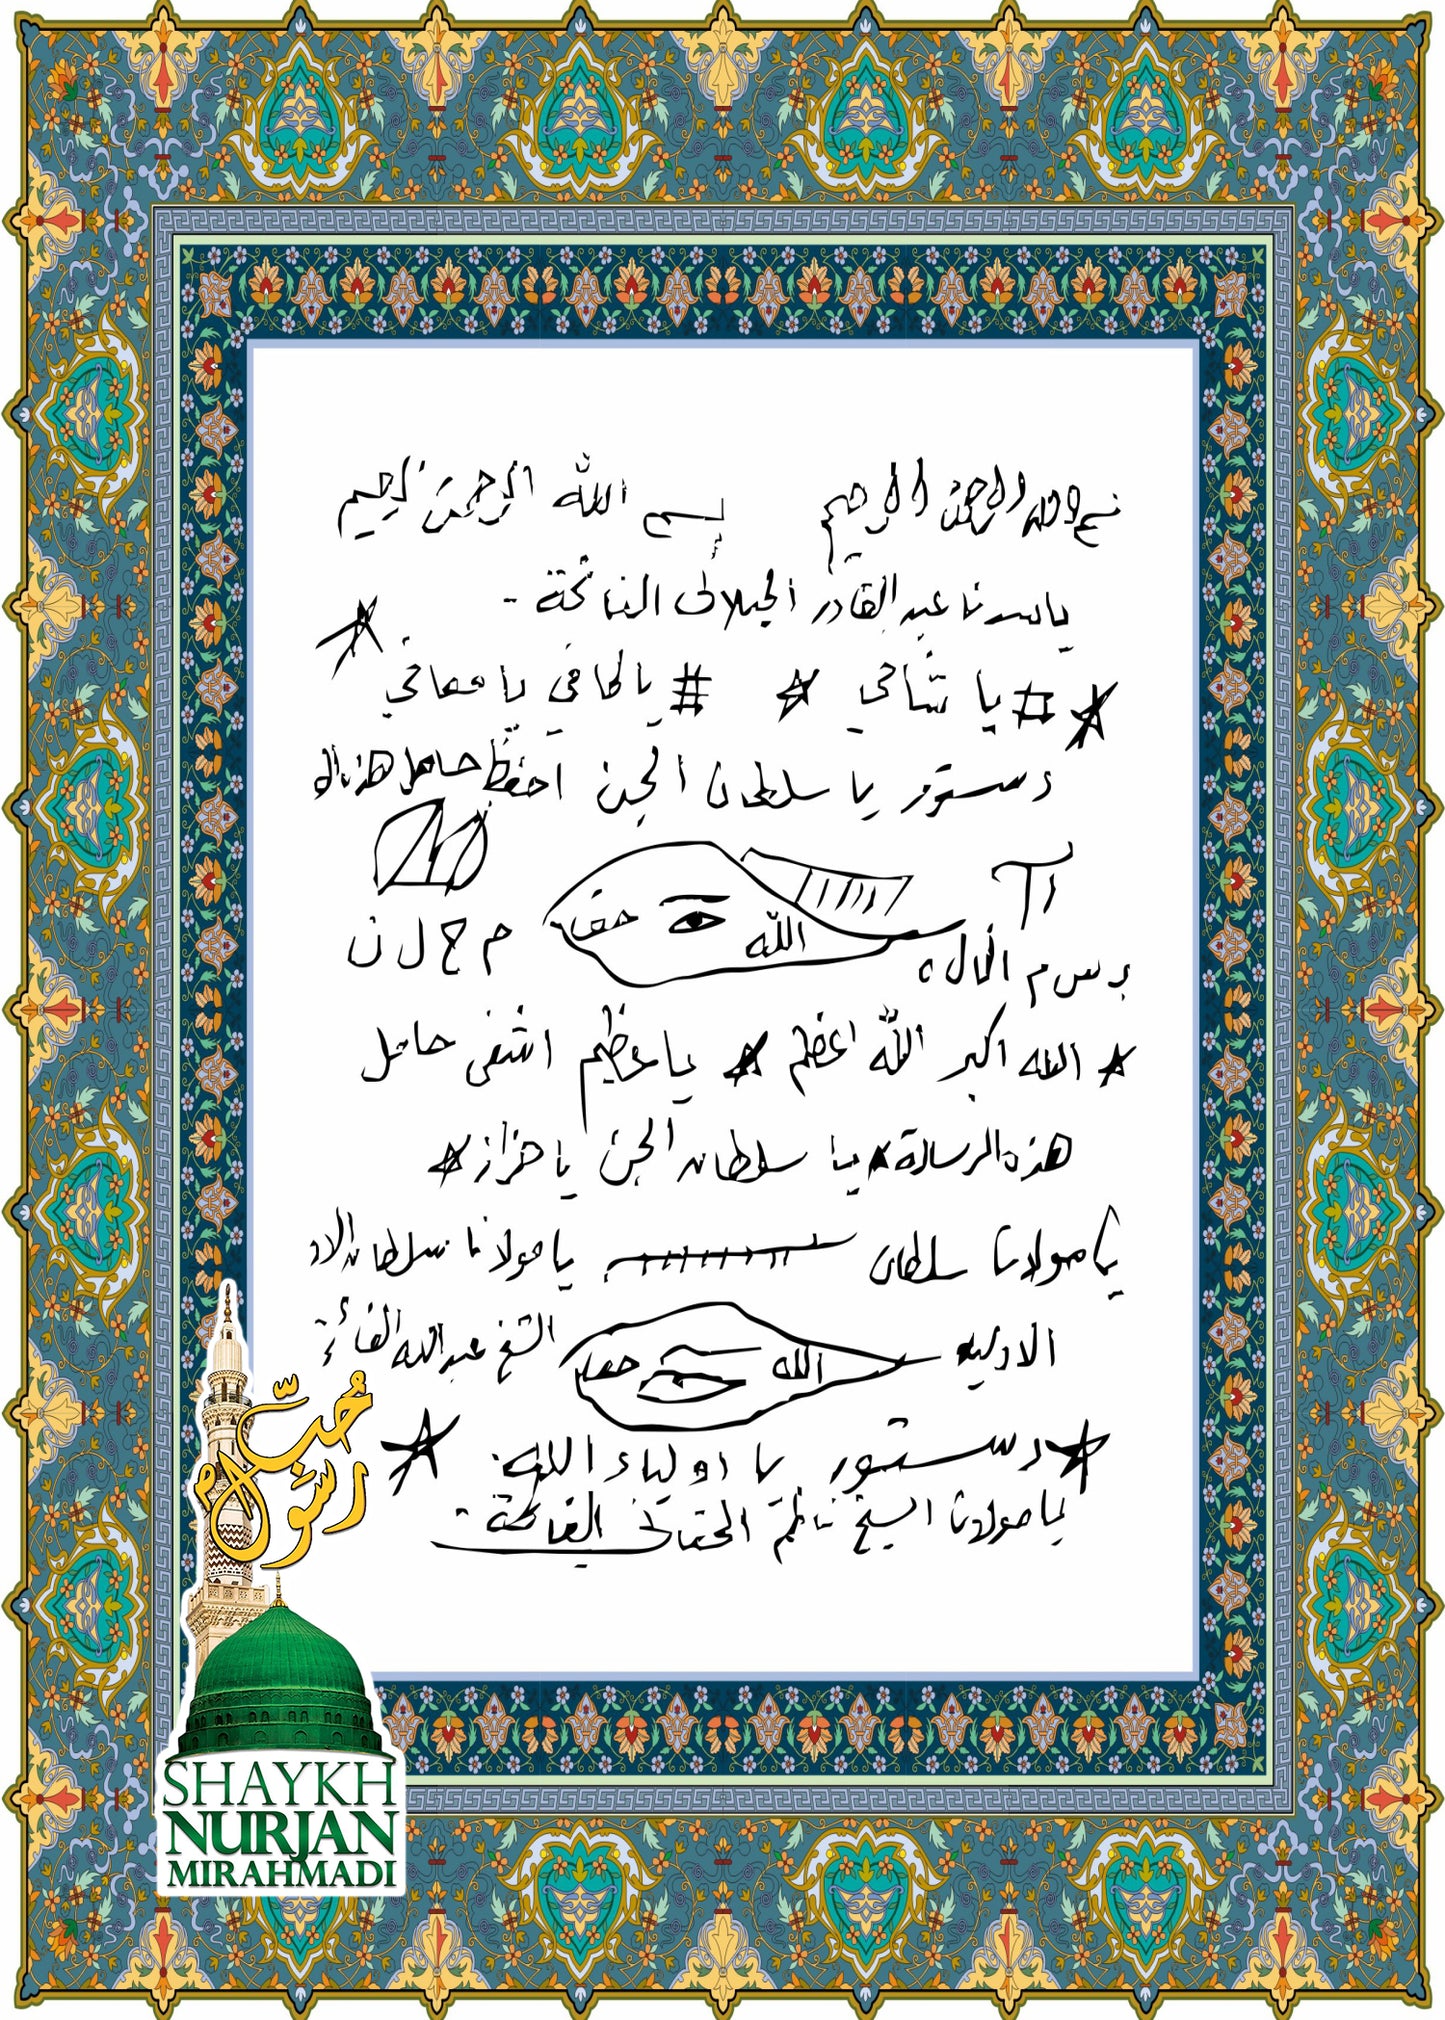 بسم الله الرحمن الرحيم بسم الله الرحمن الرحيم
يا سيدنا عبد القادر الجيلاني الفاتحة -
# يا شافي # يا كافي يا معافي
دستور يا سلطان الجن احفظ حامل هذه ال
الله حق م ح ل ن
ب س م ال ل ه
الله اكبر الله اعظم يا عظيم اشفي حامل
هذه الرسالة يا سلطان الجن يا خزاز
يا مولانا سلطان يا مولانا سلطان الاو
الاولياء الله حق الشيخ عبد الله الفائز
دستور يا اولياء الله
يا مولانا الشيخ ناظم الحقاني الفاتحة -
محب رسول
SHAYKH
NURJAN
MIRAHMADI